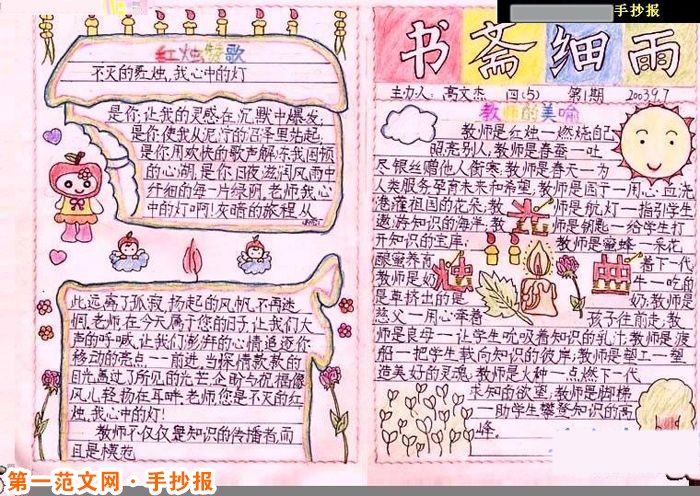 手抄报
红烛赞歌
不灭的红烛,我心中的灯
是你,让我的灵感在沉默中爆发;
是你,使我从泥泞的沼泽里站起;
是你,用欢快的歌声解冻我困顿
的心湖,是你,日夜滋润风雨中
纤细的每一片绿阴,老师,我心
中的灯啊!灰暗的旅程从
此远离了孤寂,扬起的风帆,不再迷
惘,老师,在今天属于您的日子,让我们大
声的呼喊,让我们澎湃的心情追逐你
移动的亮点——前进,当深情款款的
目光盖过了所见的光芒,企盼与祝福像
风儿轻扬在耳畔,老师您是不灭的红
烛,我心中的灯!
教师不仅仅是知识的传播者,而
且是模范
书斋细雨
主办人:高文杰 四(5) 第1期 2003.9.7
教师的美喻
教师是红烛一燃烧自己
照亮别人,教师是春蚕一吐
尽银丝赠他人御寒,教师是春天一为
人类服务孕育未来和希望,教师是园丁一用心血浇
灌祖国的花朵,教师是航灯一指引学生
遨游知识的海洋,教师是钥匙一给学生打
开知识的宝库,教师是蜜蜂一采花
酿蜜养育着下一代
教师是奶牛一吃的
是草挤出的是奶,教师是
慈父一用心牵着孩子往前走,教
师是良母一让学生吮吸着知识的乳汁,教师是渡
船一把学生载向知识的彼岸,教师是塑工一塑
造美好的灵魂,教师是火种一点燃下一代
求知的欲望,教师是脚梯
一助学生攀登知识的高
峰。
烛
第一范文网·手抄报